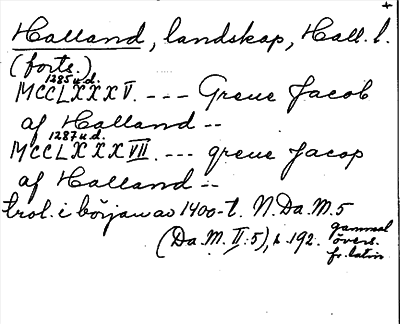 +
Halland, landskap, Hall. l.
(forts.)
1285 u.d.
MCCLXXXV. --- Greue Jacob
af Halland --
1287 u.d.
MCCLXXXVII. --- greue Jacop
af Halland --
trol. i början av 1400-t. N.Da.M.5
(Da.M. II:5), s. 192. gammal
övers.
fr. latin